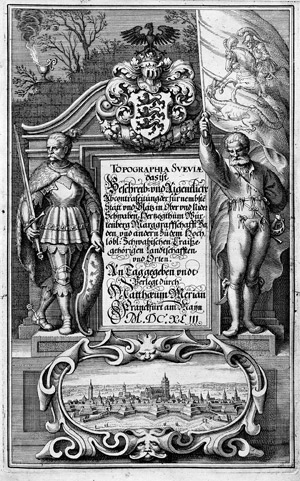 TOPOGRAPHIA SVEVIÆ
das ist
Beschreib: vnd Aigentliche
Abcontrafeitung der fürnembste
Stätt vnd Plätz in Ober vnd Nider
Schwaben, Hertzogthum Würtenberg
Marggraffschafft Baden
vnd andern zu dem Hoch
löbl: Schwabischen Craiße
gehörigen Landtschafften
vnd Orten
An Tag gegeben vndt
Verlegt durch
Matthæum Merian
Franckfurt am Mayn
M. DC. XLIII.